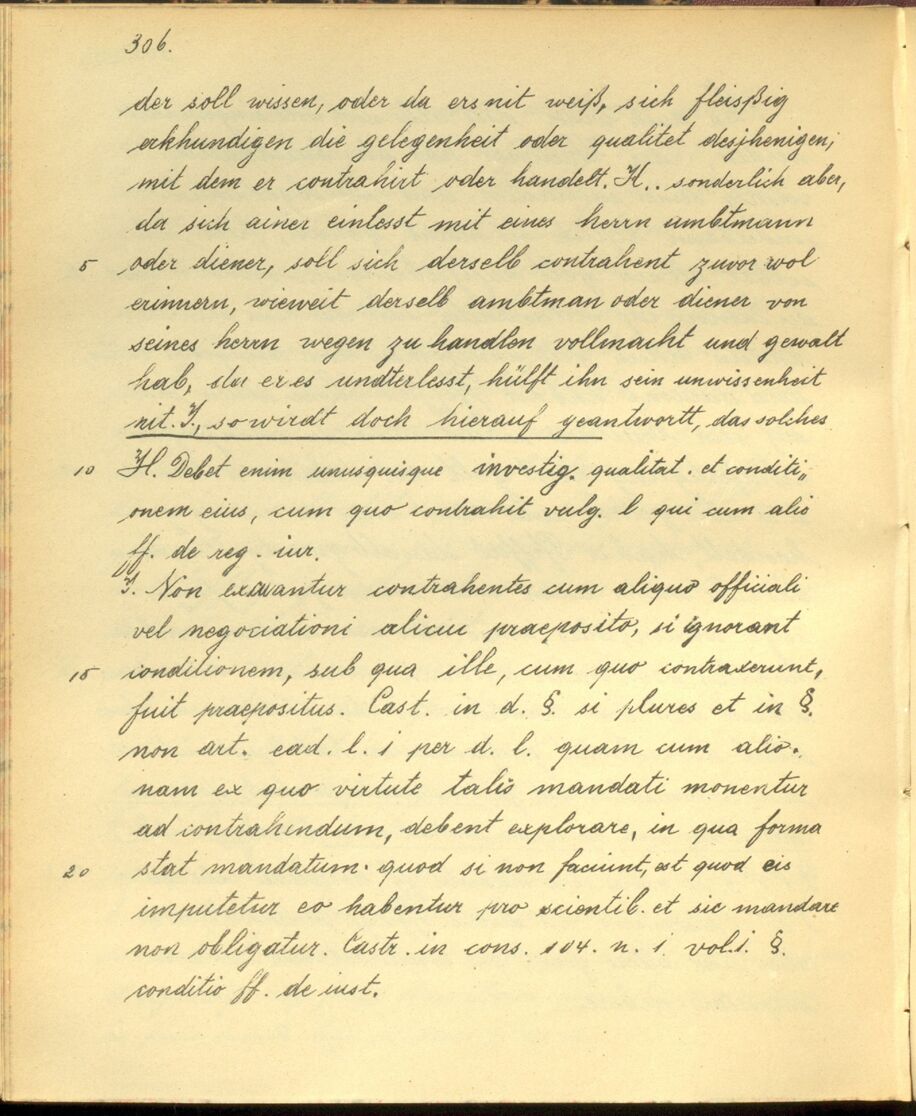 306.
der soll wissen, oder da ers nit weiß, sich fleisßig
erkhundigen die gelegenheit oder qualitet desjhenigen,
mit dem er contrahirt oder handelt. H.. sonderlich aber,
da sich ainer einlesst mit eines herrn ambtmann
5 oder diener, soll sich derselb contrahent zuvor wol
erinnern, wieweit derselb ambtman oder diener von
seines herrn wegen zu handlen vollmacht und gewalt
hab, da er es undterlesst, hülft ihn sein unwissenheit
nit. J., so wirdt doch hierauf geantwortt, das solches
10 H. Debet enim unusquisque investig. qualitat. et conditi„
onem eius, cum quo contrahit vulg. l qui cum alio
ff. de reg. iur.
J. Non excusantur contrahentes cum aliquo officiali
vel negociationi alicui praeposito, si ignorant
15 conditionem, sub qua ille, cum quo contraxerunt,
fuit praepositus. Cast. in d. §. si plures et in §.
non art. ead. l. i per d. l. quam cum alio.
nam ex quo virtute talis mandati monentur
ad contrahendum, debent explorare, in qua forma
20 stat mandatum. quod si non faciunt, est quod eis
imputetur eo habentur pro scientib. et sic mandare
non obligatur. Castr. in cons. 104. n. 1. vol. 1. §.
conditio ff. de iust.